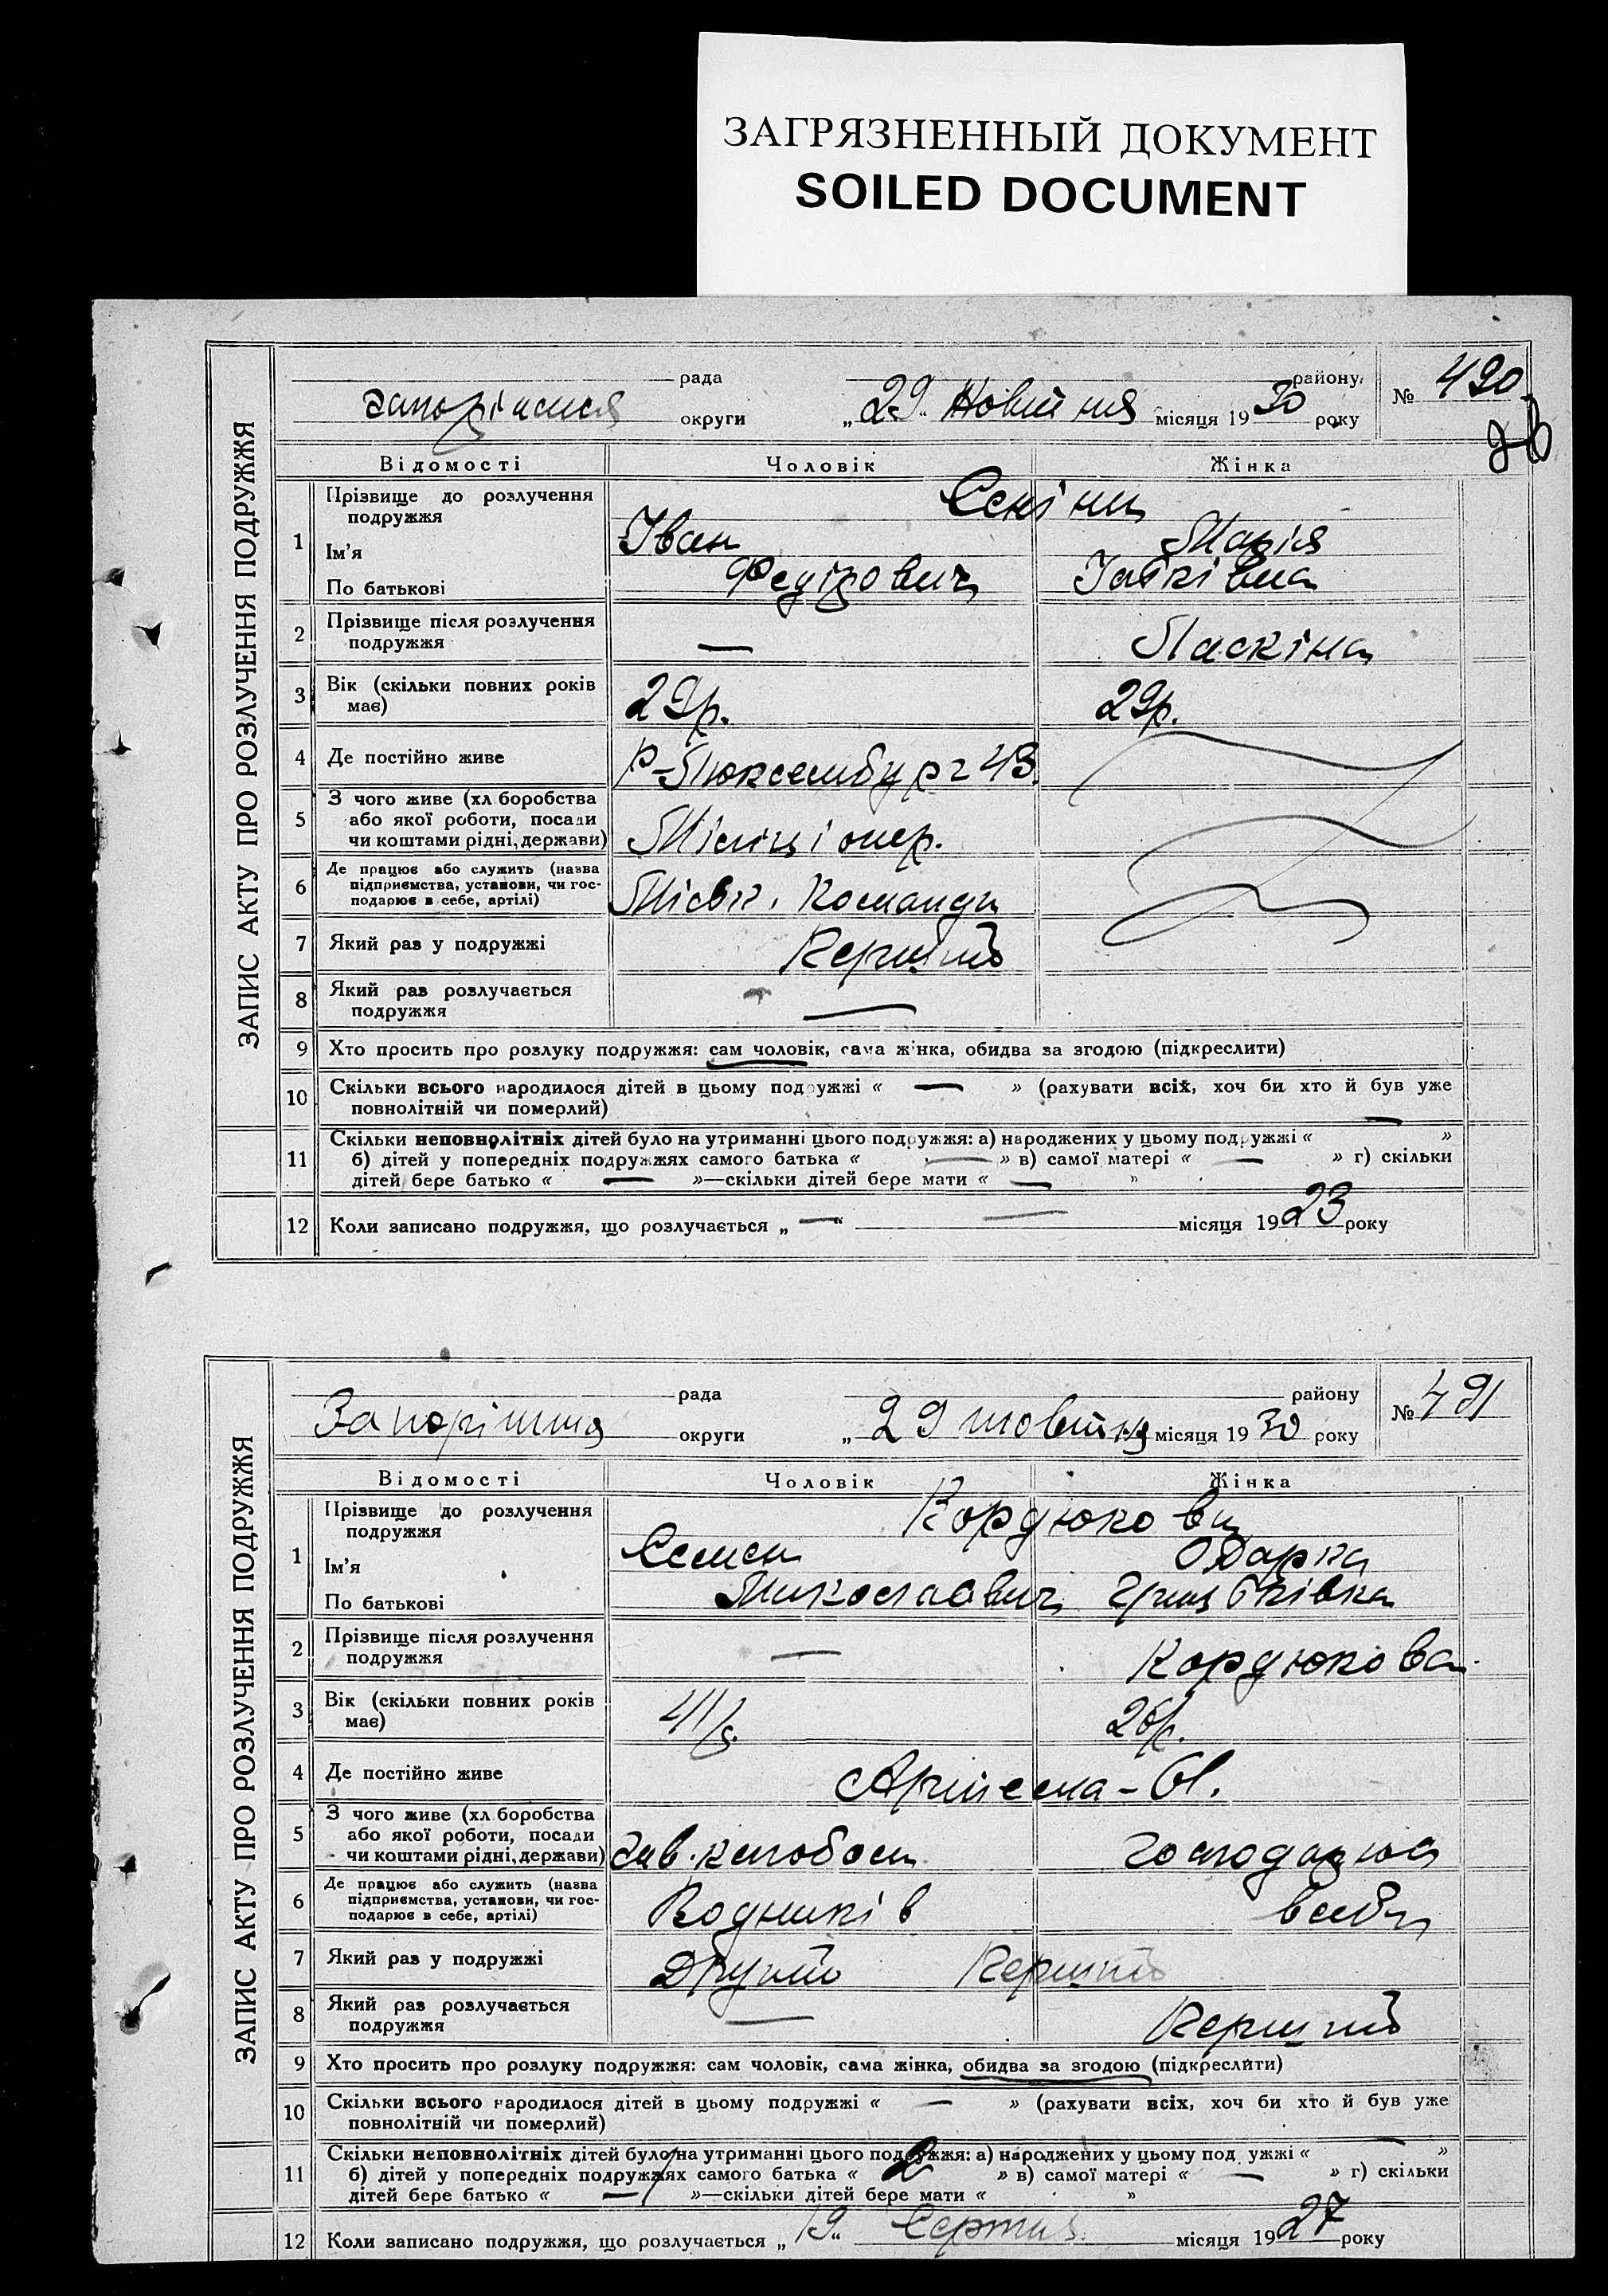 ЗАГРЯЗНЕННЫЙ ДОКУМЕНТ
SOILED DOCUMENT
ЗАПИС АКТУ ПРО РОЗЛУЧЕННЯ ПОДРУЖЖЯ
рада району
округи „29“ місяця 1930 року
№ 490
Відомості Чоловік Жінка
1 Прізвище до розлучення
подружжя
Ім'я Іван Марія
По батькові Федорович
2 Прізвище після розлучення — Паскіна
подружжя
3 Вік (скільки повних років 29р. 29р.
має)
4 Де постійно живе Р-Люксембург 43
5 З чого живе (хл боробства
або якої роботи, посади Міліціонер.
чи коштами рідні, держави)
6 Де працює або служить (назва
підприємства, установи, чи гос- Команди
подарює в себе, артілі)
7 Який раз у подружжі Перший
8 Який раз розлучається —
подружжя
9 Хто просить про розлуку подружжя: сам чоловік, сама жінка, обидва за згодою (підкреслити)
10 Скільки всього народилося дітей в цьому подружжі « — » (рахувати всіх, хоч би хто й був уже
повнолітній чи померлий)
11 Скільки неповнолітніх дітей було на утриманні цього подружжя: а) народжених у цьому подружжі « — »
б) дітей у попередніх подружжях самого батька « — » в) самої матері « — » г) скільки
дітей бере батько « — »—скільки дітей бере мати « — »
12 Коли записано подружжя, що розлучається „—“ — місяця 1923 року
ЗАПИС АКТУ ПРО РОЗЛУЧЕННЯ ПОДРУЖЖЯ
рада району
округи „29 жовтня місяця 1930 року
№ 491
Відомості Чоловік Жінка
1 Прізвище до розлучення Кордюкови
подружжя
Ім'я Семен Одарка
По батькові Миколаевич
2 Прізвище після розлучення — Кордюкова
подружжя
3 Вік (скільки повних років 41р. 26р.
має)
4 Де постійно живе Артема-
5 З чого живе (хл боробства
або якої роботи, посади Зав.
чи коштами рідні, держави)
6 Де працює або служить (назва
підприємства, установи, чи гос- Водників
подарює в себе, артілі)
7 Який раз у подружжі Другий Перший
8 Який раз розлучається — Перший
подружжя
9 Хто просить про розлуку подружжя: сам чоловік, сама жінка, обидва за згодою (підкреслити)
10 Скільки всього народилося дітей в цьому подружжі « — » (рахувати всіх, хоч би хто й був уже
повнолітній чи померлий)
11 Скільки неповнолітніх дітей було на утриманні цього подружжя: а) народжених у цьому подружжі « — »
б) дітей у попередніх подружжях самого батька « 2 » в) самої матері « — » г) скільки
дітей бере батько « — »—скільки дітей бере мати « »
12 Коли записано подружжя, що розлучається „19“ Серпня місяця 1927 року